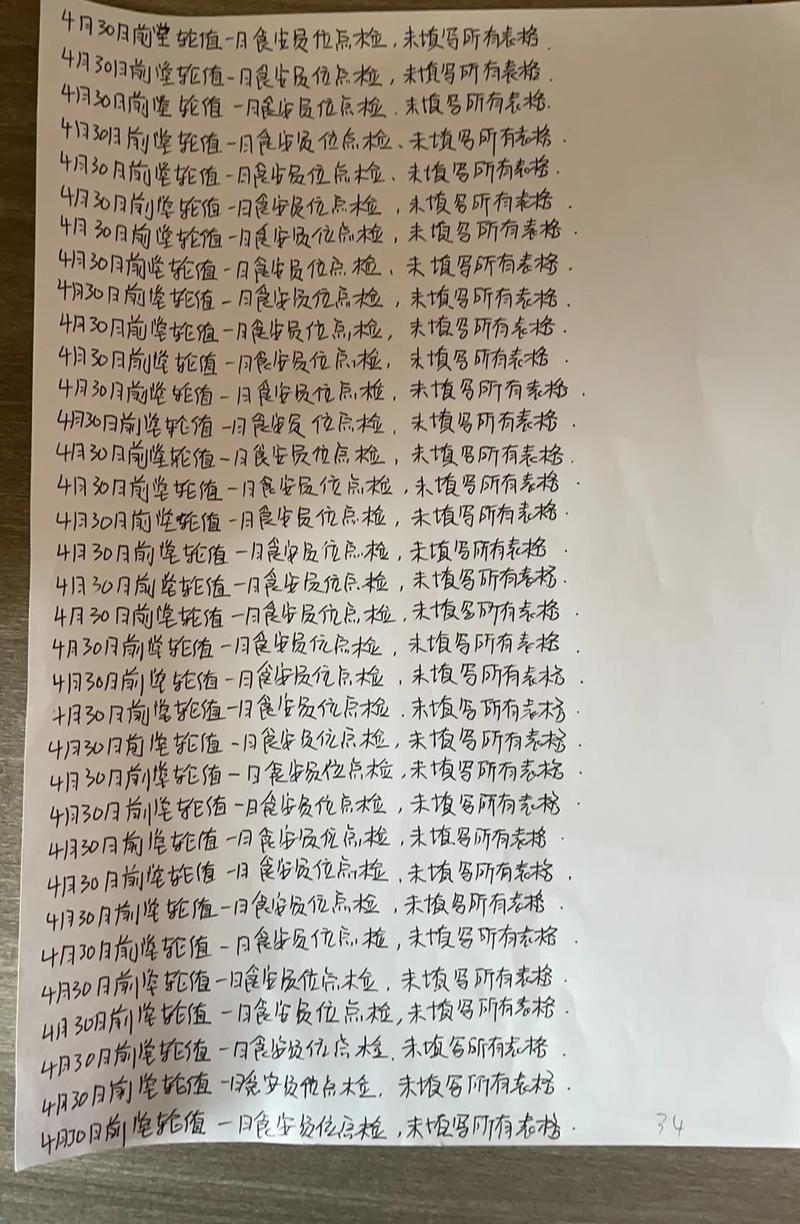 4月30日前堂轮值一日食安员位点检,未填写所有表格.
4月30日前堂轮值一日食安员位点检,未填写所有表格.
4月30日前堂轮值一日食安员位点检.未填写所有表格.
4月30日前堂轮值一日食安员位点检、未填写所有表格.
4月30日前堂轮值一日食安员位点检、未填写所有表格.
4月30日前堂轮值一日食安员位点检,未填写所有表格.
4月30日前堂轮值一日食安员位点检,未填写所有表格.
4月30日前堂轮值一日食安员位点检、未填写所有表格.
4月30日前堂轮值一日食安员位点检,未填写所有表格.
4月30日前堂轮值一日食安员位点检,未填写所有表格.
4月30日前堂轮值一日食安员位点检,未填写所有表格.
4月30日前堂轮值一日食安员位点检,未填写所有表格.
4月30日前堂轮值一日食安员位点检,未填写所有表格.
4月30日前堂轮值一日食安员位点检,未填写所有表格.
4月30日前堂轮值一日食安员位点检,未填写所有表格.
4月30日前堂轮值一日食安员位点检,未填写所有表格.
4月30日前堂轮值一日食安员位点检,未填写所有表格.
4月30日前堂轮值一日食安员位点检,未填写所有表格.
4月30日前堂轮值一日食安员位点检,未填写所有表格.
4月30日前堂轮值一日食安员位点检,未填写所有表格.
4月30日前堂轮值一日食安员位点检,未填写所有表格.
4月30日前堂轮值一日食安员位点检.未填写所有表格.
4月30日前堂轮值一日食安员位点检,未填写所有表格.
4月30日前堂轮值一日食安员位点检,未填写所有表格.
4月30日前堂轮值一日食安员位点检,未填写所有表格.
4月30日前堂轮值一日食安员位点检,未填写所有表格.
4月30日前堂轮值一日食安员位点检、未填写所有表格.
4月30日前堂轮值一日食安员位点检,未填写所有表格.
4月30日前堂轮值一日食安员位点检,未填写所有表格.
4月30日前堂轮值一日食安员位点检,未填写所有表格.
4月30日前堂轮值一日食安员位点检,未填写所有表格.
4月30日前堂轮值一日食安员位点检、未填写所有表格.
4月30日前堂轮值一日食安员位点检,未填写所有表格.
4月30日前堂轮值一日食安员位点检,未填写所有表格.
34